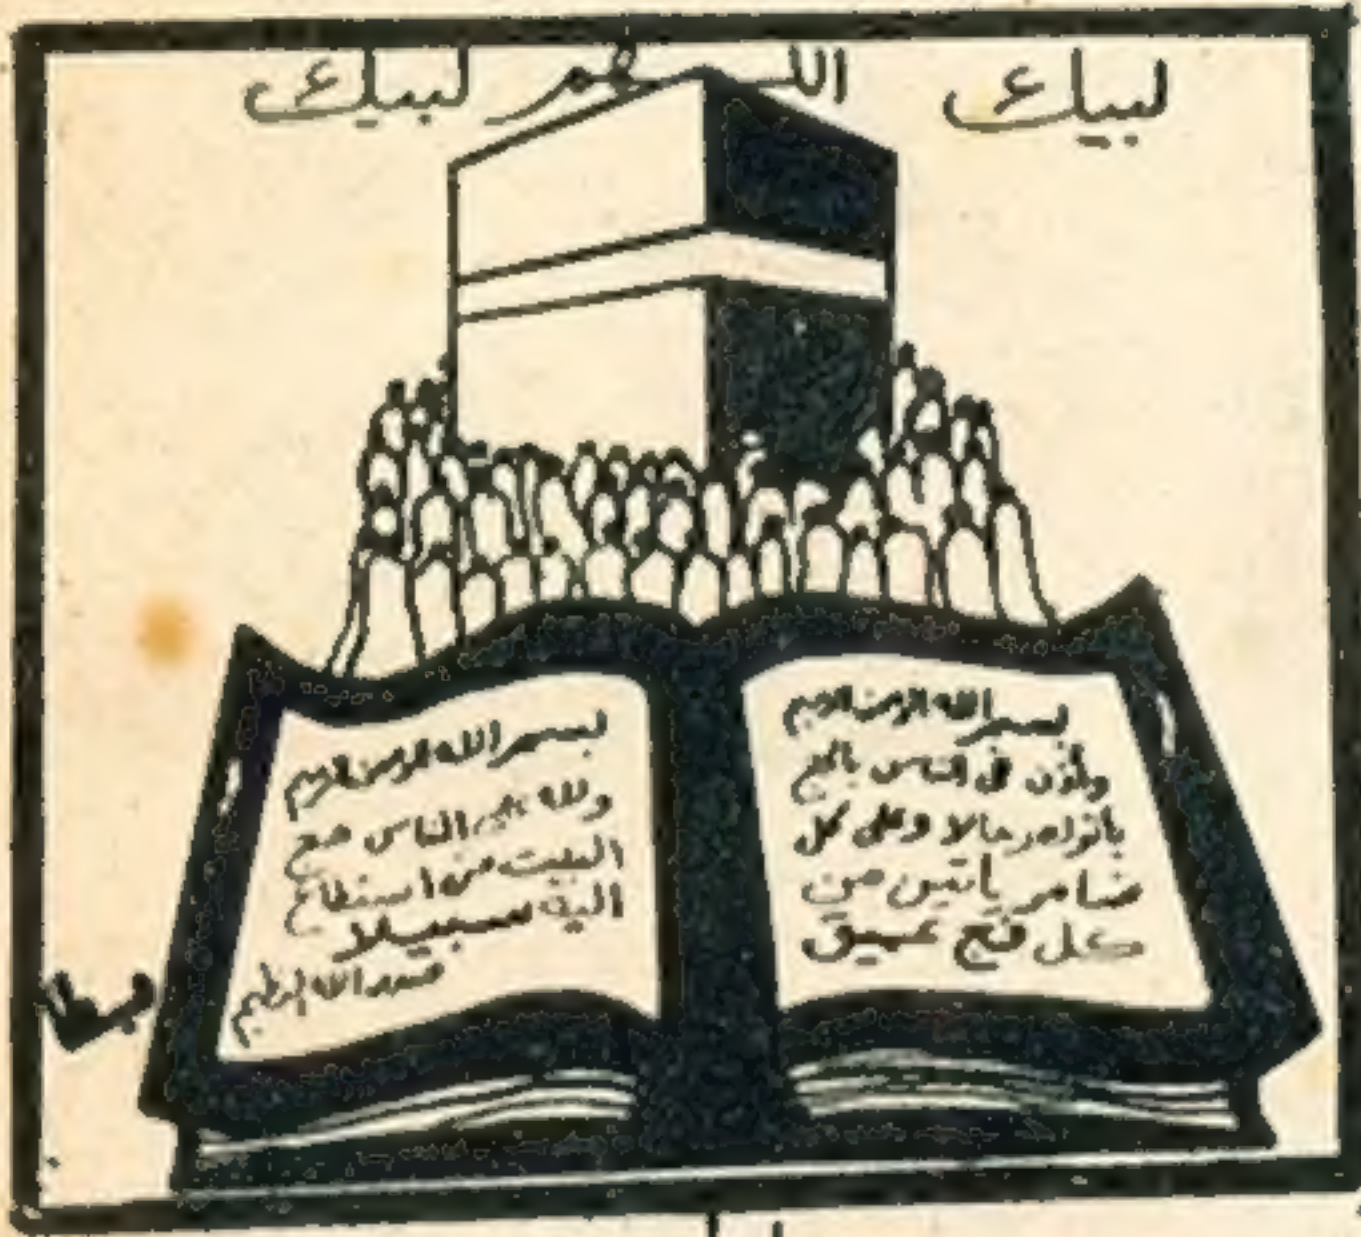 لبيك اللهم لبيك
بسم الله الرحمن الرحيم
وأذن في الناس بالحج
يأتوك رجالا وعلى كل
ضامر يأتين من
كل فج عميق
بسم الله الرحمن الرحيم
ولله على الناس حج
البيت من استطاع
اليه سبيلا
صدق الله العظيم